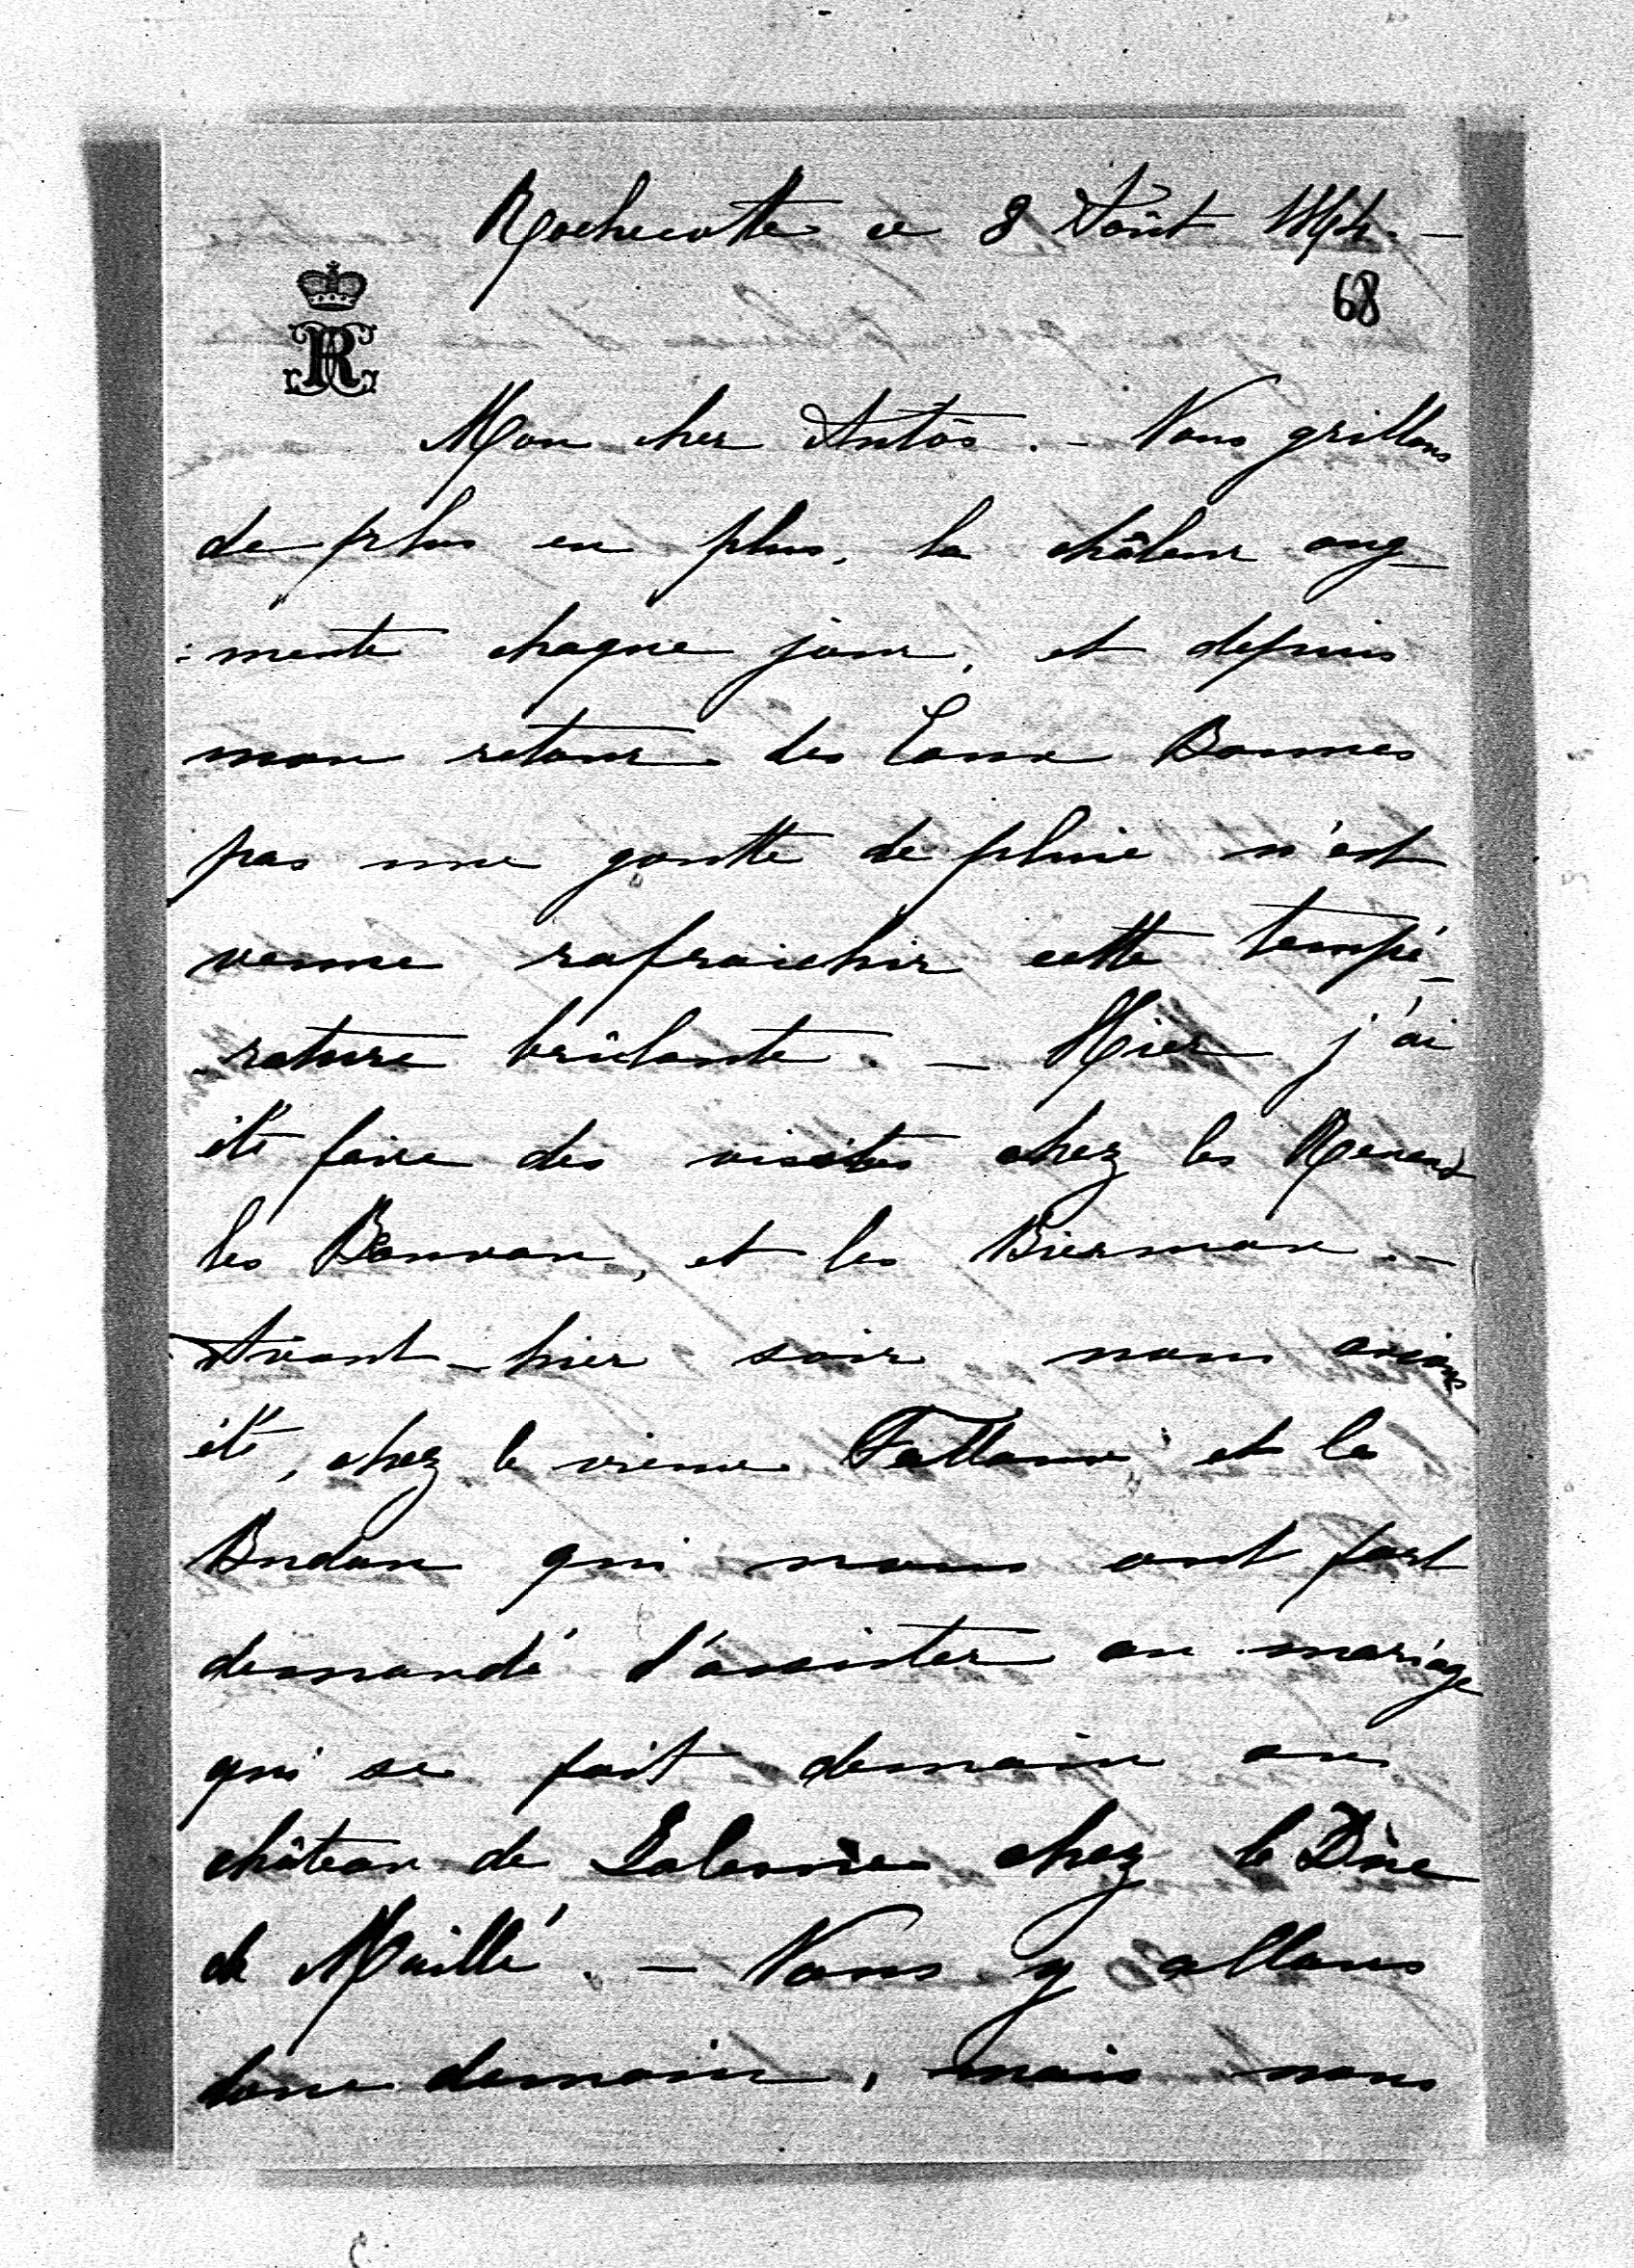 Rochecotte ce 8 Août
68
R
Mon cher Antôs. – Nous grillons
de plus en plus, la châleur aug_
-mente chaque jour, et depuis
mon retour des Eaux Bonnes
pas une goutte de pluie n'est
venue rafraichir cette tempé_
-rature brûlante. – Hier j'ai
été faire des visites chez les
les et les
Avant-hier soir nous avions
été, chez le vieux et les
Budan qui nous ont fort
demandé d'assister au mariage
qui se fait demain au
château de chez le Dúc
de Maillé. – Nous y allons
donc demain, mais nous